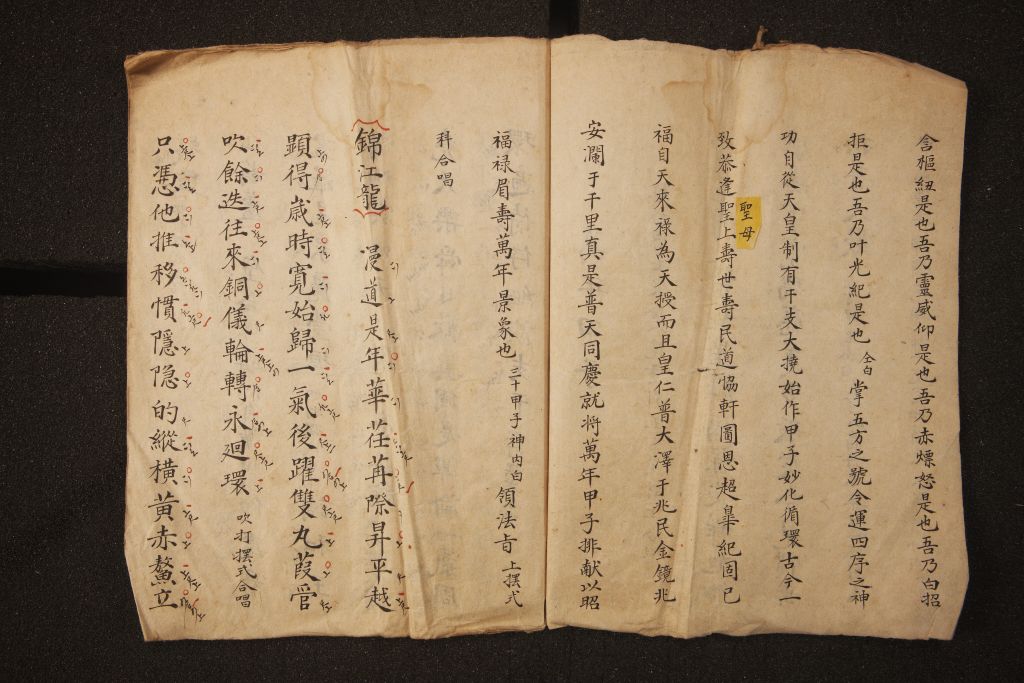 含樞紐是也吾乃靈威仰是也吾乃赤熛怒是也吾乃白招
拒是也吾乃叶光紀是也仝白掌五方之號令運四序之神
功自從天皇制有干支大撓始作甲子妙化循環古今一
聖母
致恭逢聖上壽世壽民道恊軒圖恩超皐紀固已
福自天來祿為天授而且皇仁普大澤于兆民金鏡兆
安瀾于千里真是普天同慶就将萬年甲子排献以昭
福禄眉壽萬年景象也三十甲子神内白領法旨上摆式
科合唱
錦江龍 漫道是年華荏苒際昇平越
顕得歳時寛始歸一氣後躍雙丸葭管
吹餘迭往來銅儀輪轉永迴環吹打摆式合唱
只憑他推移慣隱隐的縱横黄赤鰲立